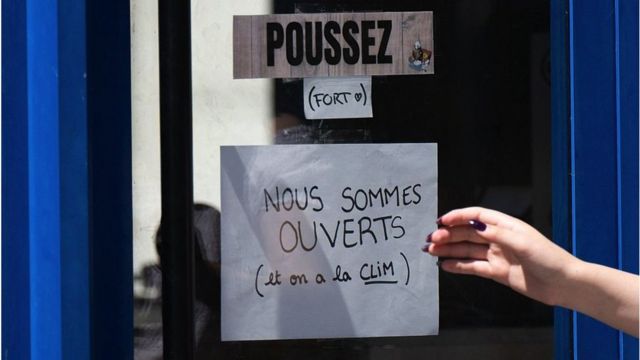 POUSSEZ
(FORT ♥)
NOUS SOMMES
OUVERTS
(et on a la CLIM)